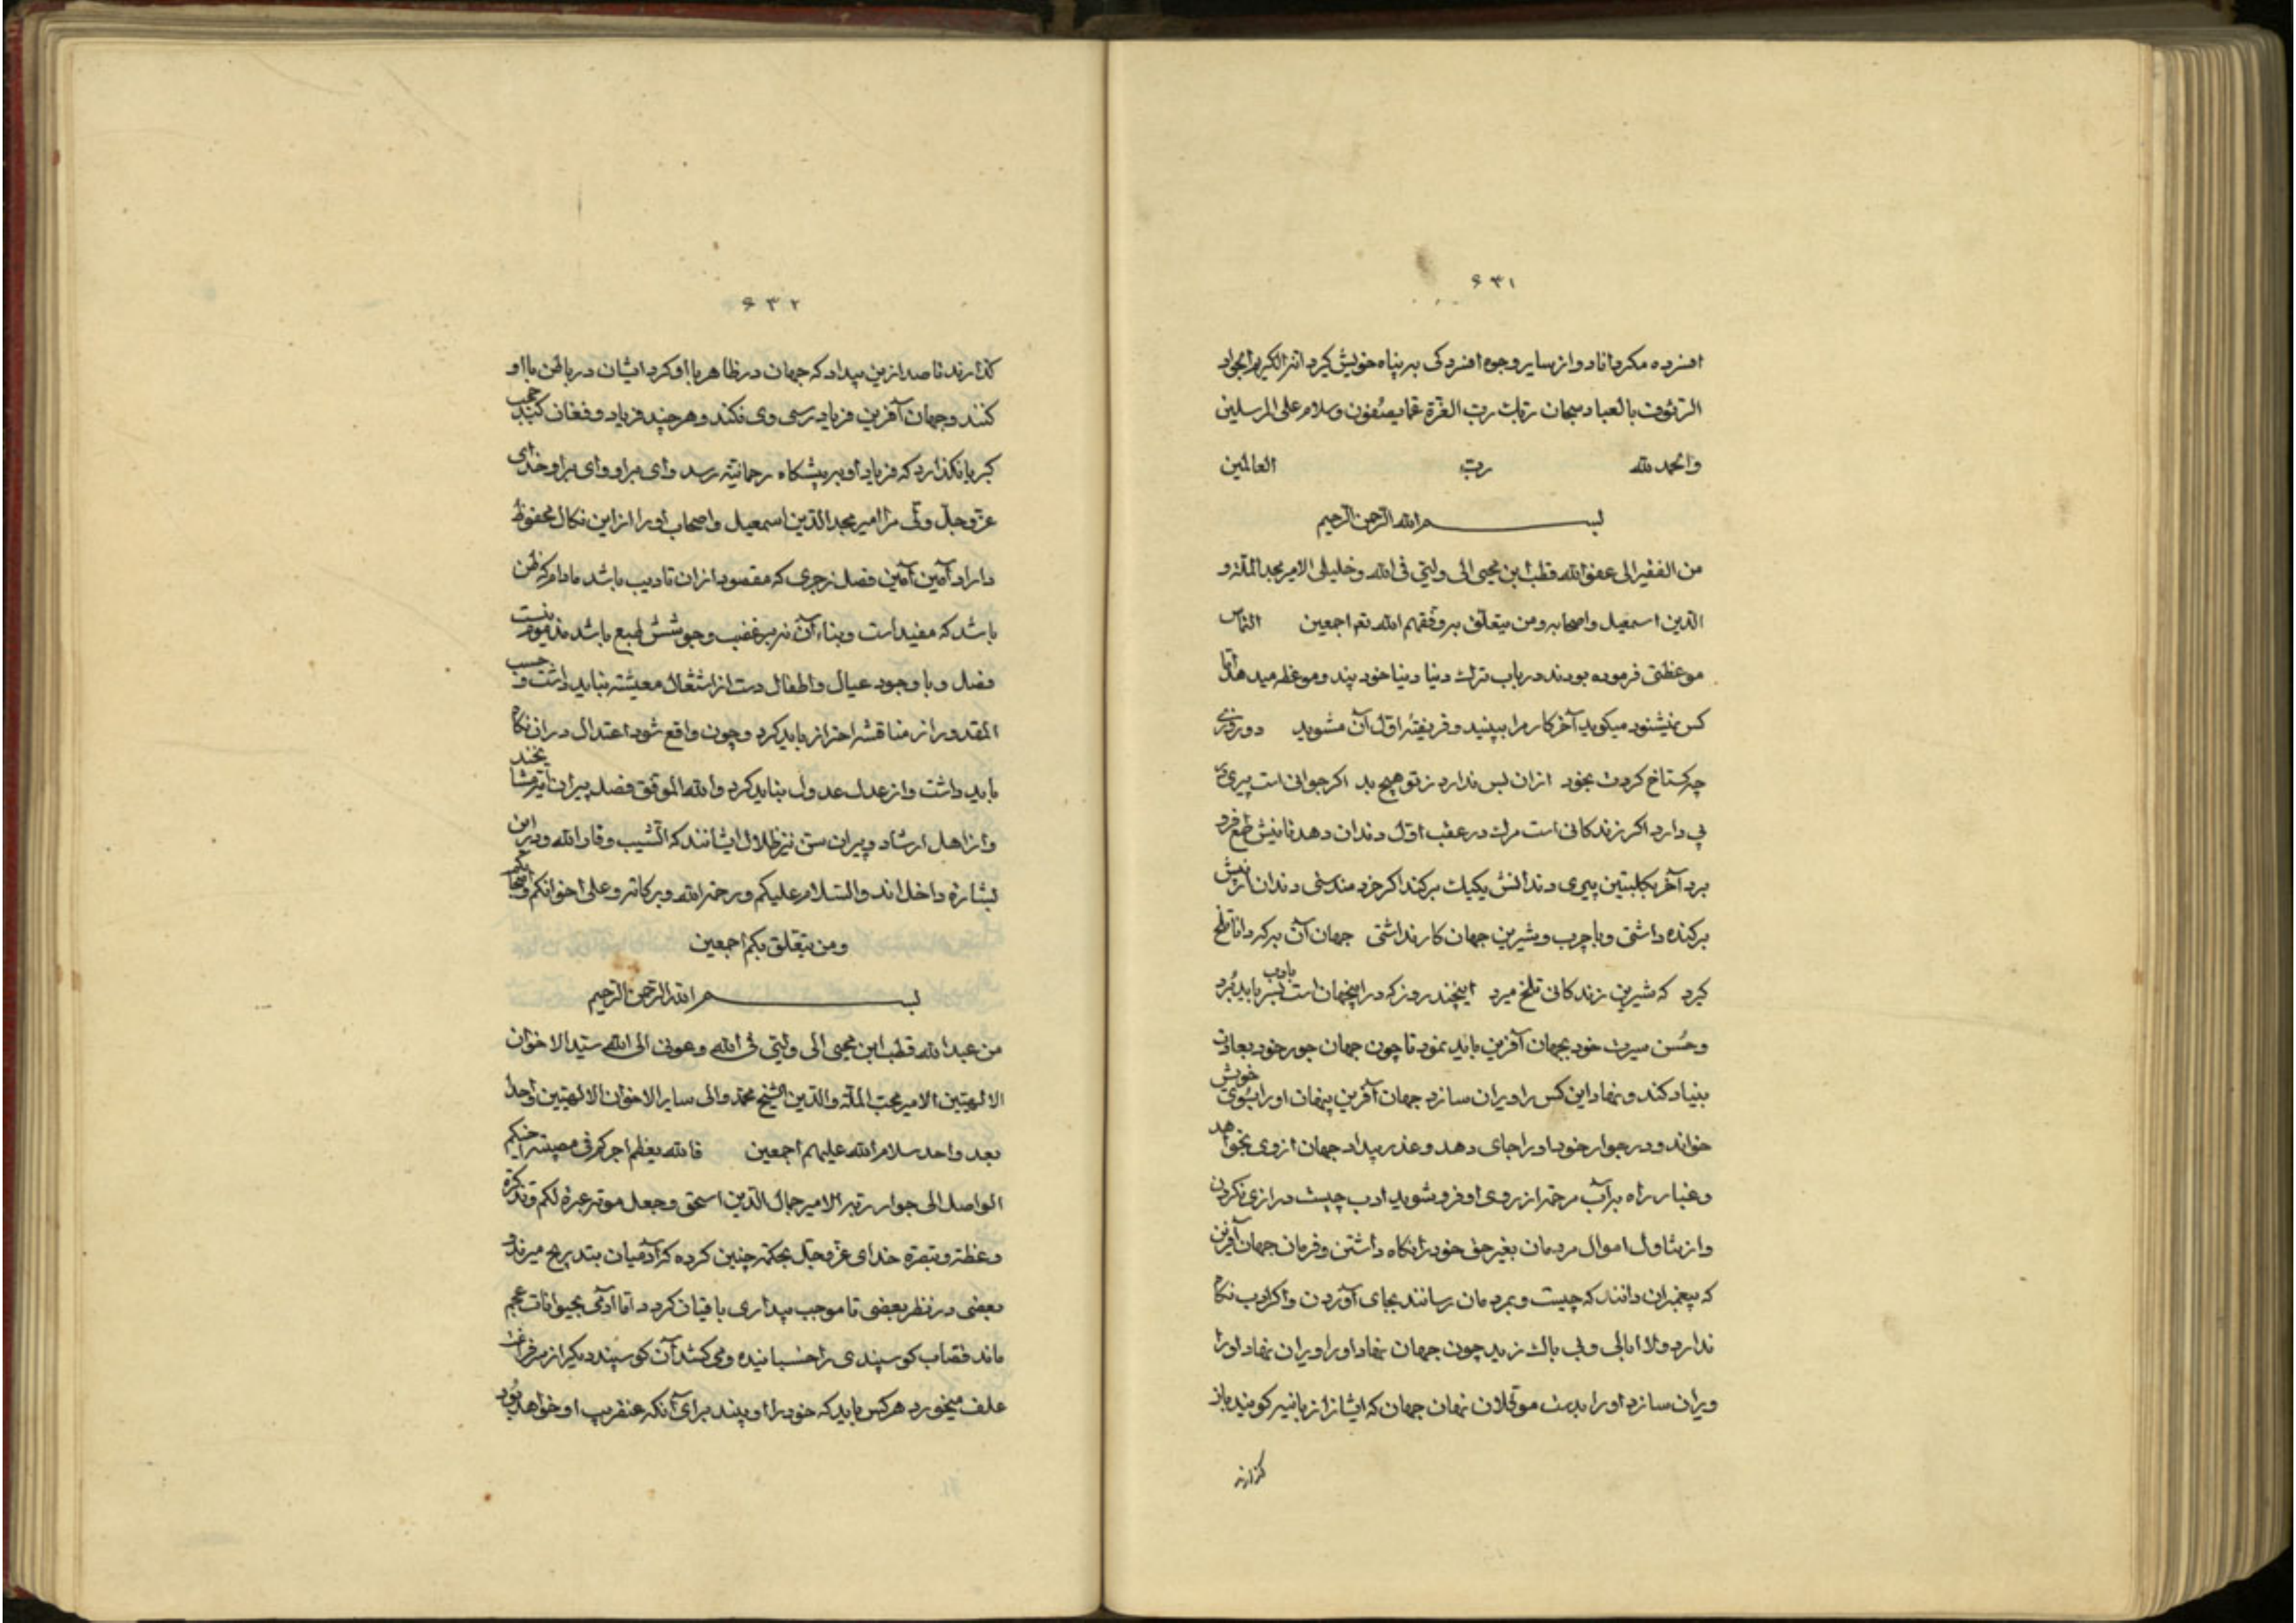 ۶۳۱
افسرده مگرداناد و از سایر وجوه افسردگی به پناه خویش گیرد انه الکریم الجواد
الرئوف بالعباد سبحان ربک رب العزة عما یصفون و سلام علی المرسلین
والحمد لله رب العالمین
بسم الله الرحمن الرحیم
من الفقیر الی عفو الله قطب ابن محیی الی ولیی فی الله و خلیلی الامیر مجد الملة و
الدین اسمعیل و اصحابه و من یتعلق به وفقهم الله تع اجمعین التماس
موعظتی فرموده بودند در باب ترک دنیا دنیا خود پند و موعظه میدهد اما
کس نمیشنود میگوید آخر کار مرا ببینید و فریفته اول آن مشوید دو روزی
چه گستاخ کردت بخود ازان بس ندارد ز تو هیچ بد اگر جوانی است پیری در
پی دارد اگر زندگانی است مرگ در عقب اول دندان دهد تا نیش طمع فرو
برد آخر بکلبتین پیری دندانش یکیک برکند اگر خردمندستی دندان از نیش
برکنده داشتی و با چرب و شیرین جهان کار نداشتی جهان آن به که دانا تلخ
گیرد که شیرین زندگانی تلخ میرد اینچند روز که در اینجهان است بادب بسر باید برد
و حُسن سیرت خود بجهان آفرین باید نمود تا چون جهان جور خود بعادت
بنیاد کند و نهاد این کس را ویران سازد جهان آفرین پنهان او را بسوی خویش
خواند و در جوار خود او را جای دهد و عذر بیداد جهان از وی بخواهد
و غبار راه به آب مرحمة از روی او فرو شوید ادب چیست درازی نکردن
و از تناول اموال مردمان بغیر حق خود را نگاه داشتن و فرمان جهان آفرین
که پیغمبران دانند که چیست و بمردمان رسانند بجای آوردن و اگر ادب نگاه
ندارد و لاابالی و بی باک زید چون جهان نهاد او را ویران نهاد او را
ویران سازد او را بدست موکلان نهان جهان که ایشانرا زبانیه گویند باز
گذارند
۶۳۲
گذارند تا صد ازین بیداد که جهان در ظاهر با او کرد ایشان در باطن با او
کنند و جهان آفرین فریادرسی وی نکند و هر چند فریاد و فغان کند حجب
کبریا نگذارد که فریاد او به پیشگاه رحمانیة رسد وای بر او وای بر او خدای
عز و جل ولی مرا امیر مجد الدین اسمعیل و اصحاب او را از این نکال محفوظ
داراد آمین آمین فصل زجری که مقصود ازان تادیب باشد مادام که ظن
باشد که مفید است و بناء آن نه بر غضب و جوشش طبع باشد مذموم نیست
فصل و با وجود عیال و اطفال دست از اشتغال معیشة نباید داشت و حسب
المقدور از مناقشه احتراز باید کرد و چون واقع شود اعتدال دران نگاه
باید داشت و از عدل عدول نباید کرد والله الموفق فصل پیران
و از اهل ارشاد و پیران سن نیز ظلال ایشانند که الشیب وقار الله و در این
بشارة داخل اند والسلام علیکم و رحمة الله و برکاته و علی اخوانکم و اصحابکم
و من یتعلق بکم اجمعین
بسم الله الرحمن الرحیم
من عبد الله قطب ابن محیی الی ولیی فی الله و عونی الی الله سید الاخوان
الالهیین الامیر محب الملة والدین الشیخ محمد والی سایر الاخوان الالهیین واحدا
بعد واحد سلام الله علیهم اجمعین فالله یعظم اجرکم فی مصیبة اخیکم
الواصل الی جوار ربه الامیر جمال الدین اسحق و جعل موته عبرة لکم و تذکرة
و عظة و تبصرة خدای عز و جل بحکمة چنین کرده که آدمیان بتدریج میرند و
بعضی در نظر بعضی تا موجب بیداری باقیان گردد اما آدمی بحیوانات عجم
ماند قصاب گوسپندی را خسبانیده و می کشد آن گوسپند دیگر از سر فراغت
علف میخورد هر کس باید که خود را او بیند برای آنکه عنقریب او خواهد بود